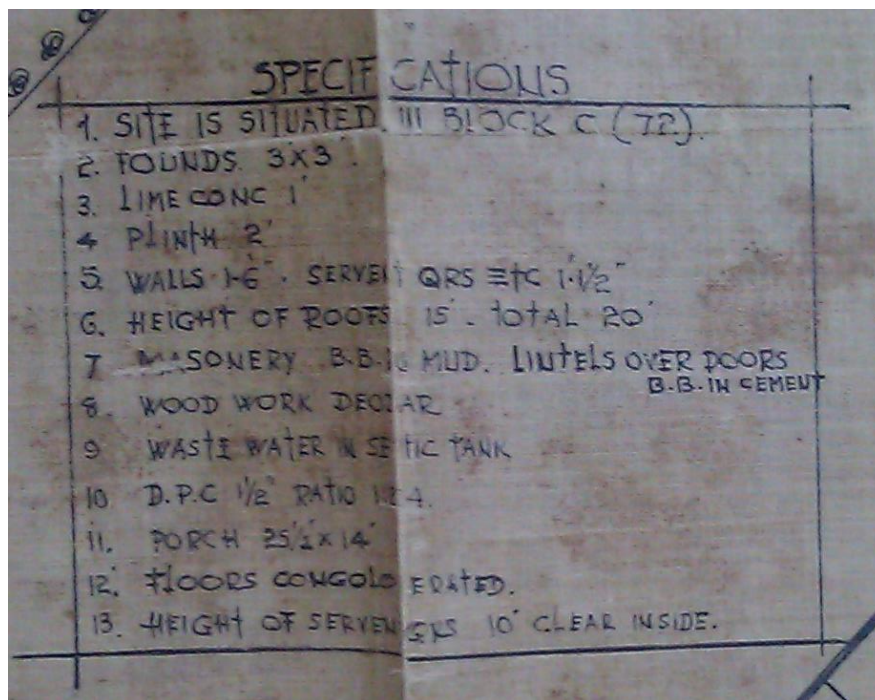 SPECIFICATIONS
1. SITE IS SITUATED. III BLOCK C (72).
2. FOUNDS. 3'X3'.
3. LIME CONC 1'
4 PLINTH 2'
5. WALLS 1-6". SERVENT QRS ETC 1'.1½"
6. HEIGHT OF ROOFS 15'. TOTAL 20'
7 MASONERY B.B.IN MUD. LINTELS OVER DOORS
B.B.IN CEMENT
8. WOOD WORK DEODAR
9 WASTE WATER IN SEPTIC TANK
10 D.P.C 1½" RATIO 1:2:4.
11. PORCH 25'½ X 14'
12. FLOORS CONGOLOMERATED.
13. HEIGHT OF SERVENT QRS 10' CLEAR INSIDE.